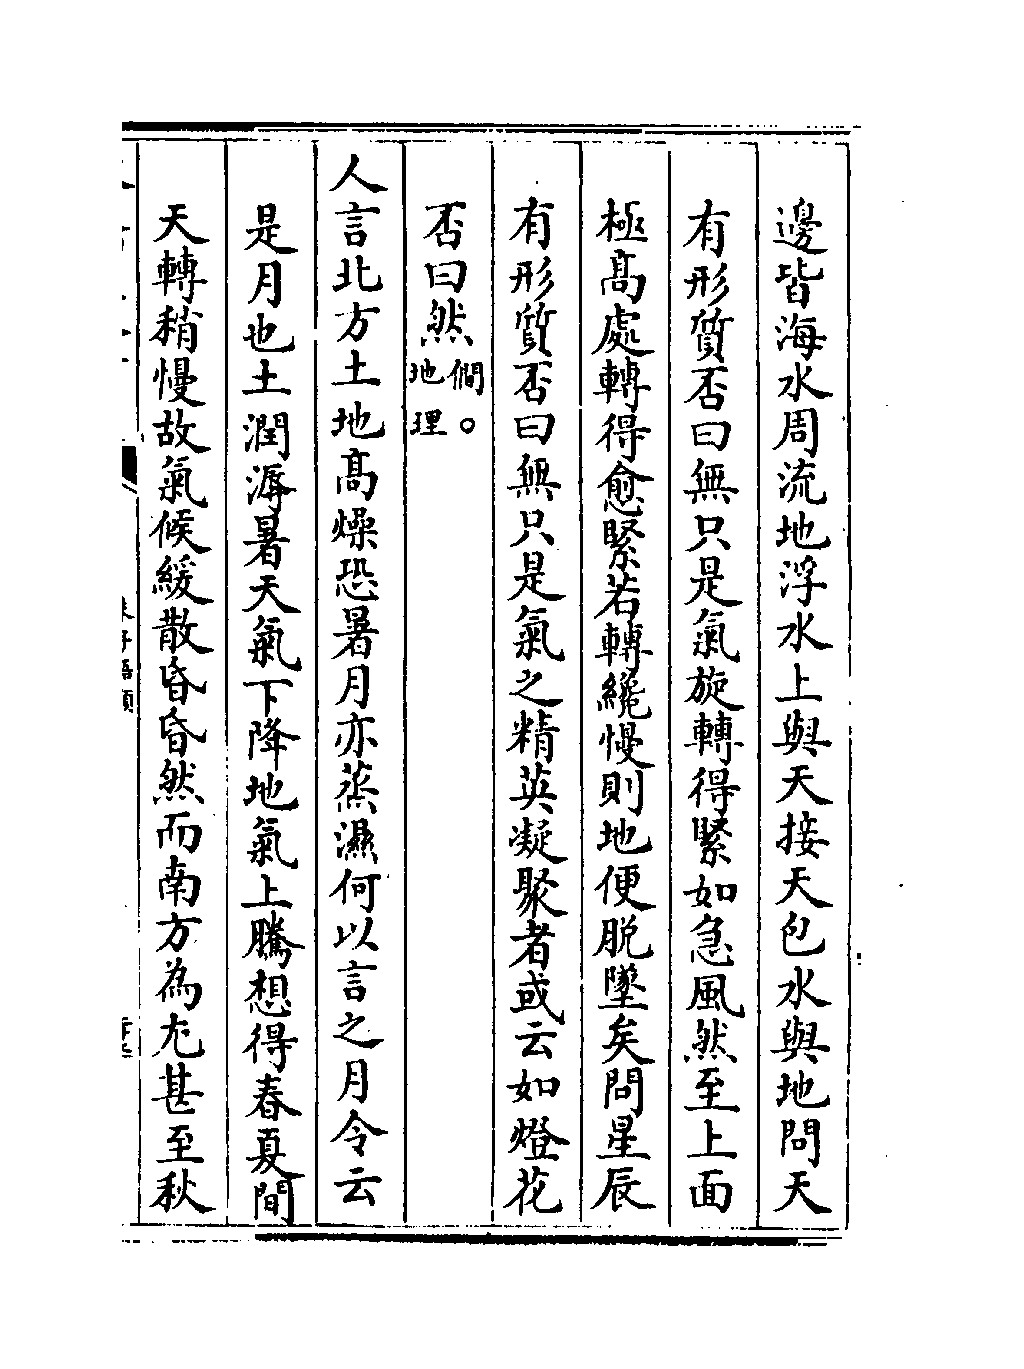 邊皆海水周流地浮水上與天接天包水與地問天
有形質否曰無只是氣旋轉得緊如急風然至上面
極高處轉得愈緊若轉纔慢則地便脫墜矣問星辰
有形質否曰無只是氣之精英凝聚者或云如燈花
否曰然僴。地理
人言北方土地高燥恐暑月亦蒸濕何以言之月令云
是月也土潤溽暑天氣下降地氣上騰想得春夏間
天轉稍慢故氣候緩散昏昏然而南方為尤甚至秋